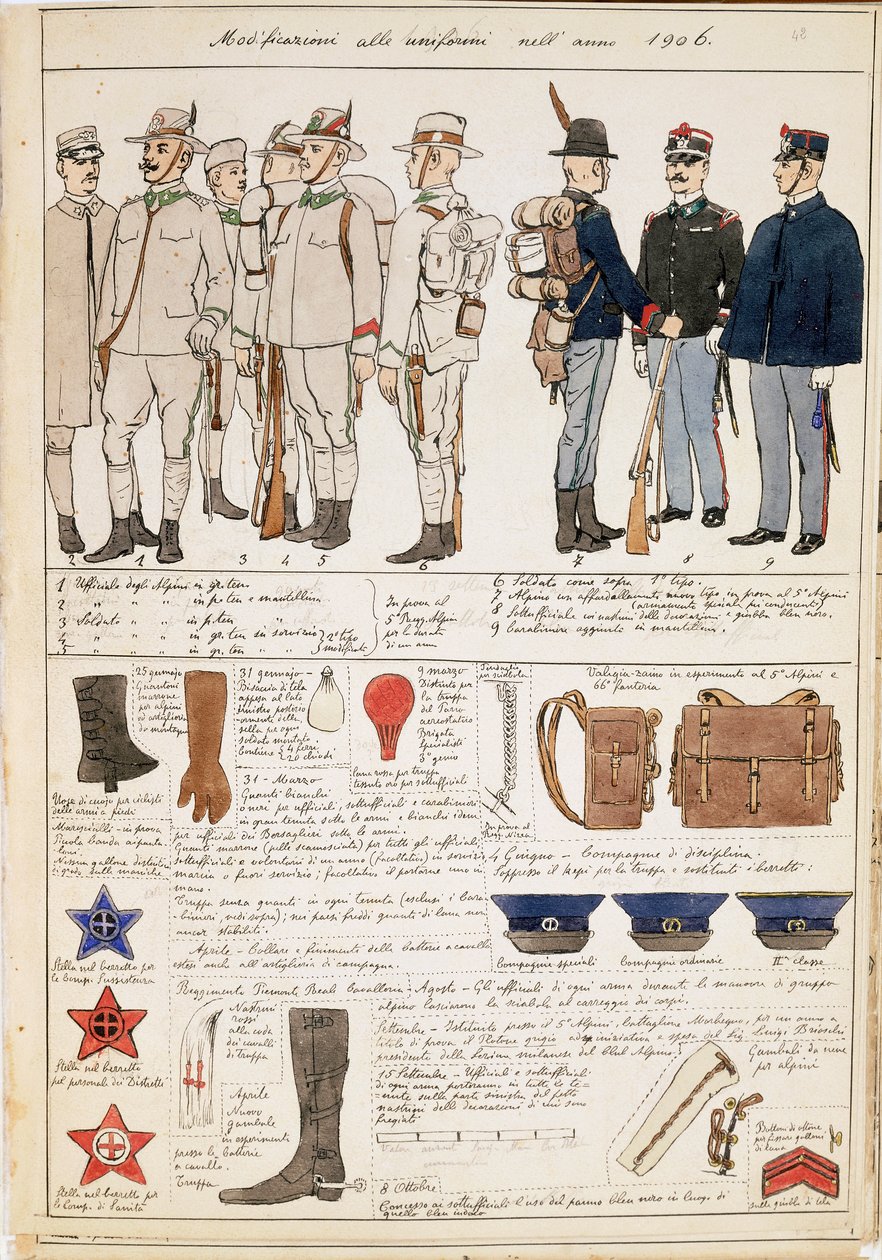 Modificazioni alle uniformi nell' anno 1906.
42
2 1 3 4 5 6 7 8 9
1 Ufficiale degli Alpini in gr. ten.
2 " " " in p. ten e mantellina
3 Soldato " " in p. ten
4 " " " in gr. ten su servizio } 2° tipo
5 " " " " " " } modificato
In prova al
5° Regg. Alpini
per la durata
di un anno
6 Soldato come sopra 1° tipo.
7 Alpino con affardellamento nuovo tipo in prova al 5° Alpini
(armamento speciale pei conducenti)
8 Sottufficiale coi nastrini delle decorazioni e giubba bleu nero.
9 Carabiniere aggiunti in mantellina.
Uose di cuojo per ciclisti
delle armi a piedi
25 gennajo
Guantoni
marrone
per alpini
ed artiglieria
da montagna
31 gennajo -
Bisaccia di tela
appesa al lato
sinistro posterio-
ormente della
sella per ogni
soldato montato.
Contiene 4 ferri
20 chiodi
lana rossa per truppa
tessuto oro per sottufficiali
9 marzo
Distinto per
la truppa
del Parco
aereostatico
Brigata
Specialisti
3° genio
Dondaglio
per sciabola
In prova al
Reg. Nizza
Valigia-zaino in esperimento al 5° Alpini e
66° fanteria
Marescialli - in prova
Piccola banda ai panta-
loni.
Nissun gallone distinti
di grado sulle maniche
31 - Marzo
Guanti bianchi
o neri per ufficiali, sottufficiali e carabinieri
in gran tenuta sotto le armi e bianchi idem
per ufficiali dei Bersaglieri sotto le armi.
Guanti marrone (pelle scamosciata) per tutti gli ufficiali,
sottufficiali e volontari di un anno (facoltativo) in servizio,
marcia o fuori servizio; facoltativo il portarne uno in
mano.
Truppa senza guanti in ogni tenuta (esclusi i Cara-
binieri, vedi sopra); nei paesi freddi guanti di lana neri
ancor stabiliti.
Aprile - Collare e finimenti delle batterie a cavallo
estesi anche all'artiglieria di campagna.
4 Giugno - Compagnie di disciplina.
Soppresso il kepi per la truppa e sostituiti i berretti:
Compagnie speciali
Compagnie ordinarie
IIa classe
Stella nel berretto per
le Comp. Sussistenza
Stella nel berretto
pel personale dei Distretti
Stella nel berretto per
le Comp. di Sanità
Reggimento Piemonte Reale Cavalleria
Nastrini
rossi
alla coda
dei cavalli
di truppa
Aprile
Nuovo
gambale
in esperimenti
presso le batterie
a cavallo.
Truppa
Agosto - Gli ufficiali di ogni arma durante le manovre di gruppo
alpino lasciarono la sciabola al carreggio dei corpi.
Settembre - Istituito presso il 5° Alpini, battaglione Morbegno, per un anno a
titolo di prova il Plotone grigio ad iniziativa e spesa del Sig. Luigi Brioschi
presidente della Sezione milanese del Club Alpino
15 Settembre - Ufficiali e sottufficiali
di ogni arma porteranno in tutte le te=
=nute sulla parte sinistra del petto
nastrini delle decorazioni di cui sono
fregiati
Gambali da neve
per alpini
Bottoni di ottone
per fissare galloni
di lana
sulle giubbe di tela
8 Ottobre
Concesso ai sottufficiali l'uso del panno bleu nero in luogo di
quello bleu indaco